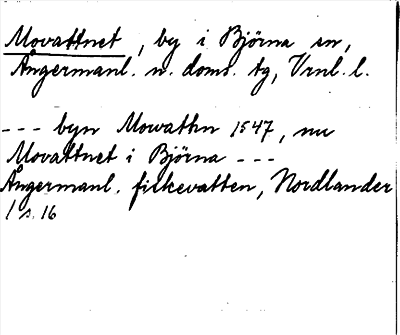 Movattnet, by i Björna sn,
Ångermanl. n. doms. tg, Vrnl. l.
--- byn Mowattn 1547, nu
Movattnet i Björna ---
Ångermanl. fiskevatten, Nordlander
1 s. 16